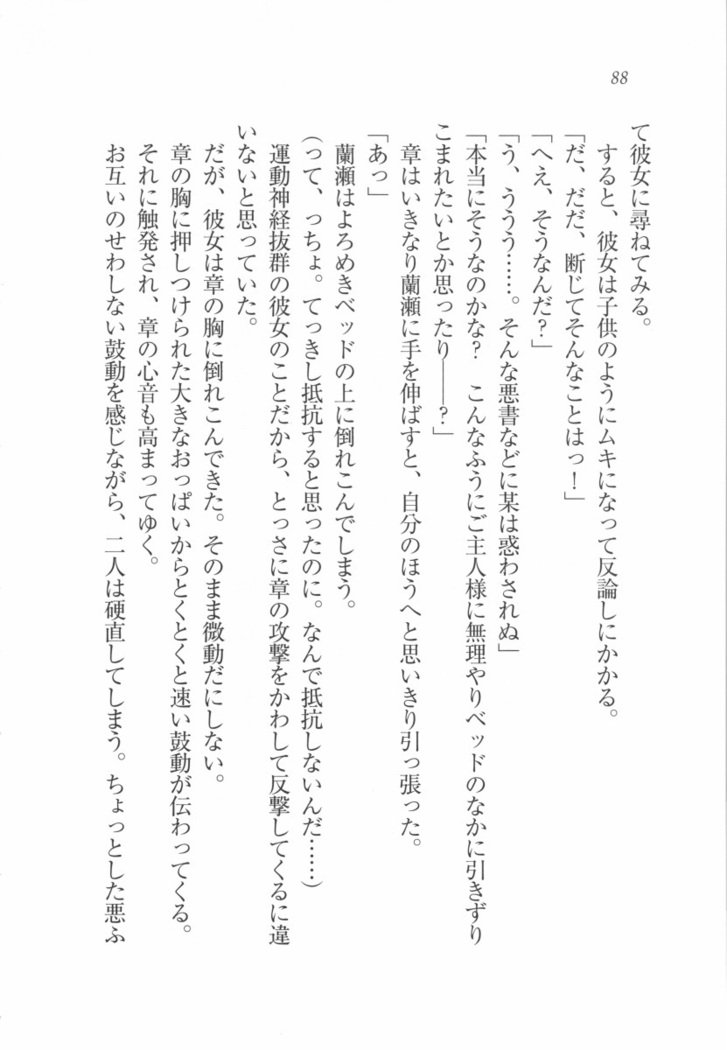 88
て彼女に尋ねてみる。
すると、彼女は子供のようにムキになって反論しにかかる。
「だ、だだ、断じてそんなことはっ！」
「へえ、そうなんだ？」
「う、ううう……。そんな悪書などに某は惑わされぬ」
「本当にそうなのかな？　こんなふうにご主人様に無理やりベッドのなかに引きずり
こまれたいとか思ったり――？」
章はいきなり蘭瀬に手を伸ばすと、自分のほうへと思いきり引っ張った。
「あっ」
蘭瀬はよろめきベッドの上に倒れこんでしまう。
（って、っちょ。てっきし抵抗すると思ったのに。なんで抵抗しないんだ……）
運動神経抜群の彼女のことだから、とっさに章の攻撃をかわして反撃してくるに違
いないと思っていた。
だが、彼女は章の胸に倒れこんできた。そのまま微動だにしない。
章の胸に押しつけられた大きなおっぱいからとくとくと速い鼓動が伝わってくる。
それに触発され、章の心音も高まってゆく。
お互いのせわしない鼓動を感じながら、二人は硬直してしまう。ちょっとした悪ふ